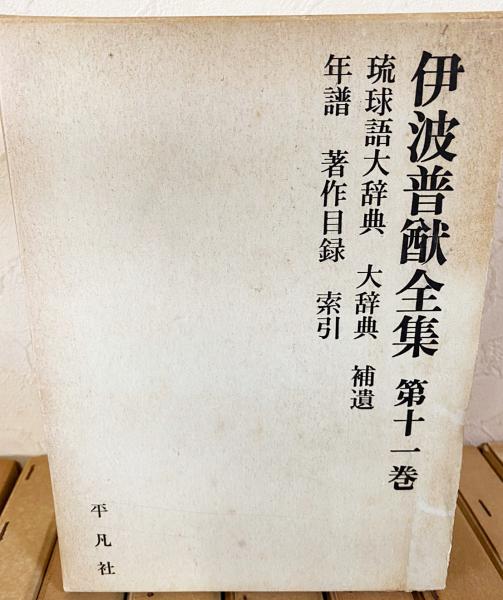 伊波普猷全集 第十一巻
琉球語大辞典 大辞典 補遺
年譜 著作目録 索引
平凡社